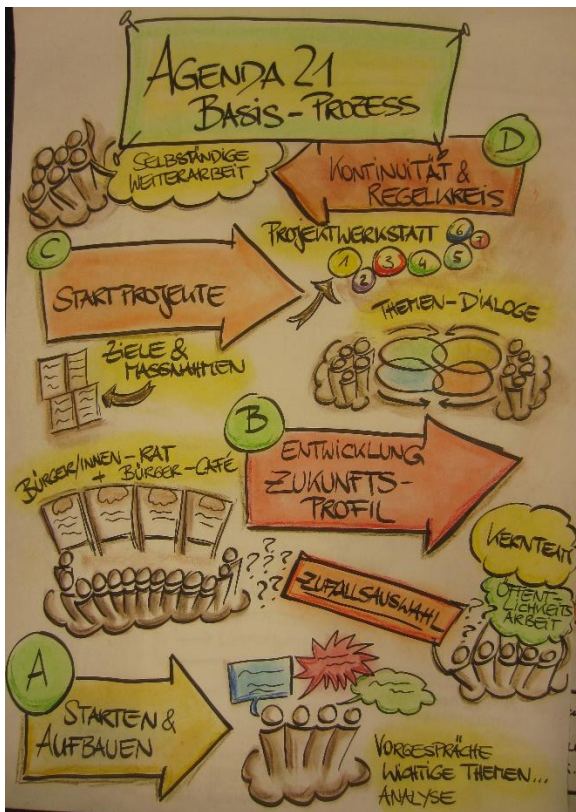 AGENDA 21
BASIS-PROZESS
SELBSTÄNDIGE
WEITERARBEIT
D
KONTINUITÄT &
REGELKREIS
C
STARTPROJEKTE
PROJEKTWERKSTATT
1 2 3 4 5 6 7
THEMEN-DIALOGE
ZIELE &
MASSNAHMEN
B
ENTWICKLUNG
ZUKUNFTS-
PROFIL
BÜRGER/INNEN-RAT
+ BÜRGER-CAFÉ
? ? ? ? ? ?
ZUFALLSAUSWAHL
KERNTEAM
ÖFFENT-
LICHKEITS
ARBEIT
? ?
A
STARTEN &
AUFBAUEN
VORGESPRÄCHE
WICHTIGE THEMEN...
ANALYSE